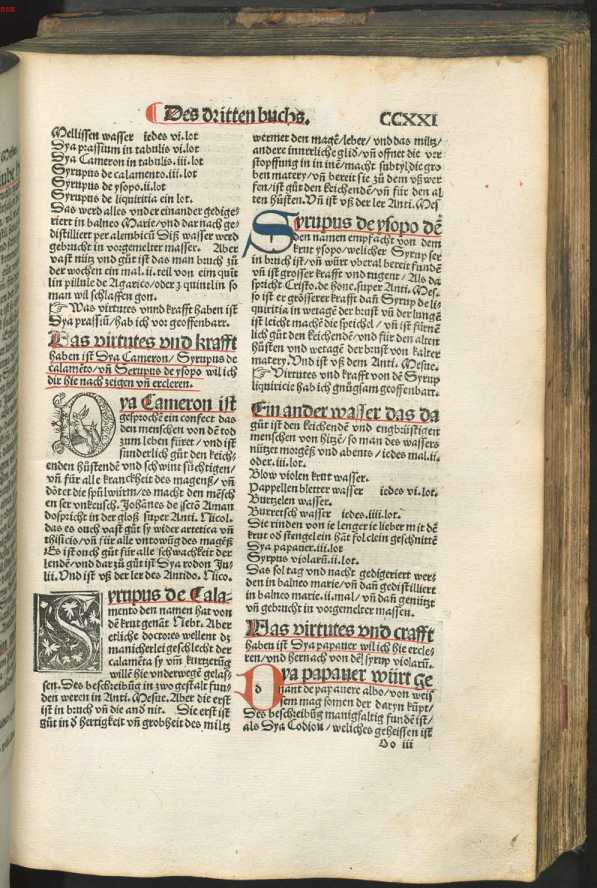 Des dritten buchs.
CCXXI
Mellissen wasser iedes vi.lot
Dya prassium in tabulis vi.lot
Dya Cameron in tabulis.iii.lot
Syrupus de calamento.iii.lot
Syrupus de ysopo.ii.lot
Syrupus de liquiritia ein lot.
Das werd alles vnder einander gedige-
riert in balneo Marie/vnd dar nach ge-
distilliert per alembicū Diß wasser werd
gebrucht in vorgemelter masser. Aber
vast nütz vnd gůt ist das man bruch zů
der wochen ein mal.ii.teil von eim quit
lin pillule de Agarico/oder ʒ quintlin so
man wil schlaffen gon.
☞ Was virtutes vnnd krafft haben ist
Dya prassiū/hab ich vor geoffenbart.
Das virtutes vnd krafft
haben ist Dya Cameron/Syrupus de
calamēto/vn̄ Serupus de ysopo wil ich
dir hie nach zeigen vn̄ ercleren.
Dya Cameron ist
gesprochē ein confect das
den menschen von dē tod
zum leben füret/vnd ist
sunderlich gůt den keich-
enden hůstendē vnd schwint süchtigen/
vn̄ für alle kranckheit des magenß/vn̄
dötet die spůlwürm/es macht den mēsch
en ser vnkeusch. Johānes de sctō Aman
do spricht in der gloß super Anti. Nicol.
das es ouch vast gůt sy wider artetica vn̄
thisicis/vn̄ für alle vntowūg des magēß
Es ist ouch gůt für alle schwachkeit der
lendē/vnd dar zů gůt ist Dya rodon Ju-
lii. Vnd ist vß der les Antido. Nico.
Syrupus de Cala-
mento den namen hat von
dē krut genāt Nebt. Aber
etliche doctores wellent dz
manicherlei geschlecht der
calamēta sy vm̄ kurtzerūg
willē hie vnderwegē gelas-
sen. Des beschreibūg in zwo gestalt fun/
den weren in Anti. Mesue. Aber die erst
ist in bruch vn̄ die and nit. Die erst ist
gůt in ď hertigkeit vn̄ grobheit des miltz
wermer den magē/leber/ vnd das miltz/
andere innerliche glid/vn̄ offnet die ver
stopffung in in nē/macht subtyl die gro
ben matery/vn̄ bereit sie zů dem vß wer
fen/ist gůt den keichendē/vn̄ für den al
ten hůsten. Vn̄ ist vß der ler Anti. Mes
Syrupus de ysopo dē
den namen empfacht von dem
krut ysopo/welicher Syrup ser
in bruch ist/vn̄ würt vberal bereit fundē
vn̄ ist grosser krafft vnd tugent/ Als da
spricht Cristo. de hone. super Anti. Mes.
so ist er grösserer krafft dan̄ Syrup de li-
quiritia in wetagē der brust vn̄ der lungē
ist leicht machē die speichel/ vn̄ ist fürnē
lich gůt den keichendē/vnd für den alten
hůsten vnd wetagē der brust von kalter
matery. Vnd ist vß dem Anti. Mesue.
☞ Virtutes vnd krafft von dē Syrup
liquiricie hab ich gnůgsam geoffenbart.
Ein ander wasser das da
gůt ist den keichendē vnd engbrüstigen
menschen von hitzē/so man des wassers
nützet morgēß vnd abents/iedes mal.ii.
oder.iii.lot.
Blow violen krut wasser.
Pappellen bletter wasser iedes vi.lot.
Burtzelen wasser.
Burretsch wasser iedes.iiii.lot.
Die rinden von ie lenger ie lieber mit dē
krut od stengel ein hāt fol clein geschnittē
Dya papauer.iii.lot
Syrpus violarū.ii.lot.
Das sol tag vnd nacht gedigeriert wer-
den in balneo marie/vn̄ dan̄ gedistilliert
in balneo marie.ii.mal/vn̄ dan̄ genützt
vn̄ gebrucht in vorgemelter massen.
Was virtutes vnd crafft
haben ist Dya papauer wil ich hie ercle-
ren/vnd hernach von dē syrup violarū.
Dya papauer würt ge
nant de papauere albo/von weis
sem mag somen der daryn kūpt/
Des beschreibūg manigfaltig fundē ist/
als Dya Codion/weliches geheissen ist
Oo iii